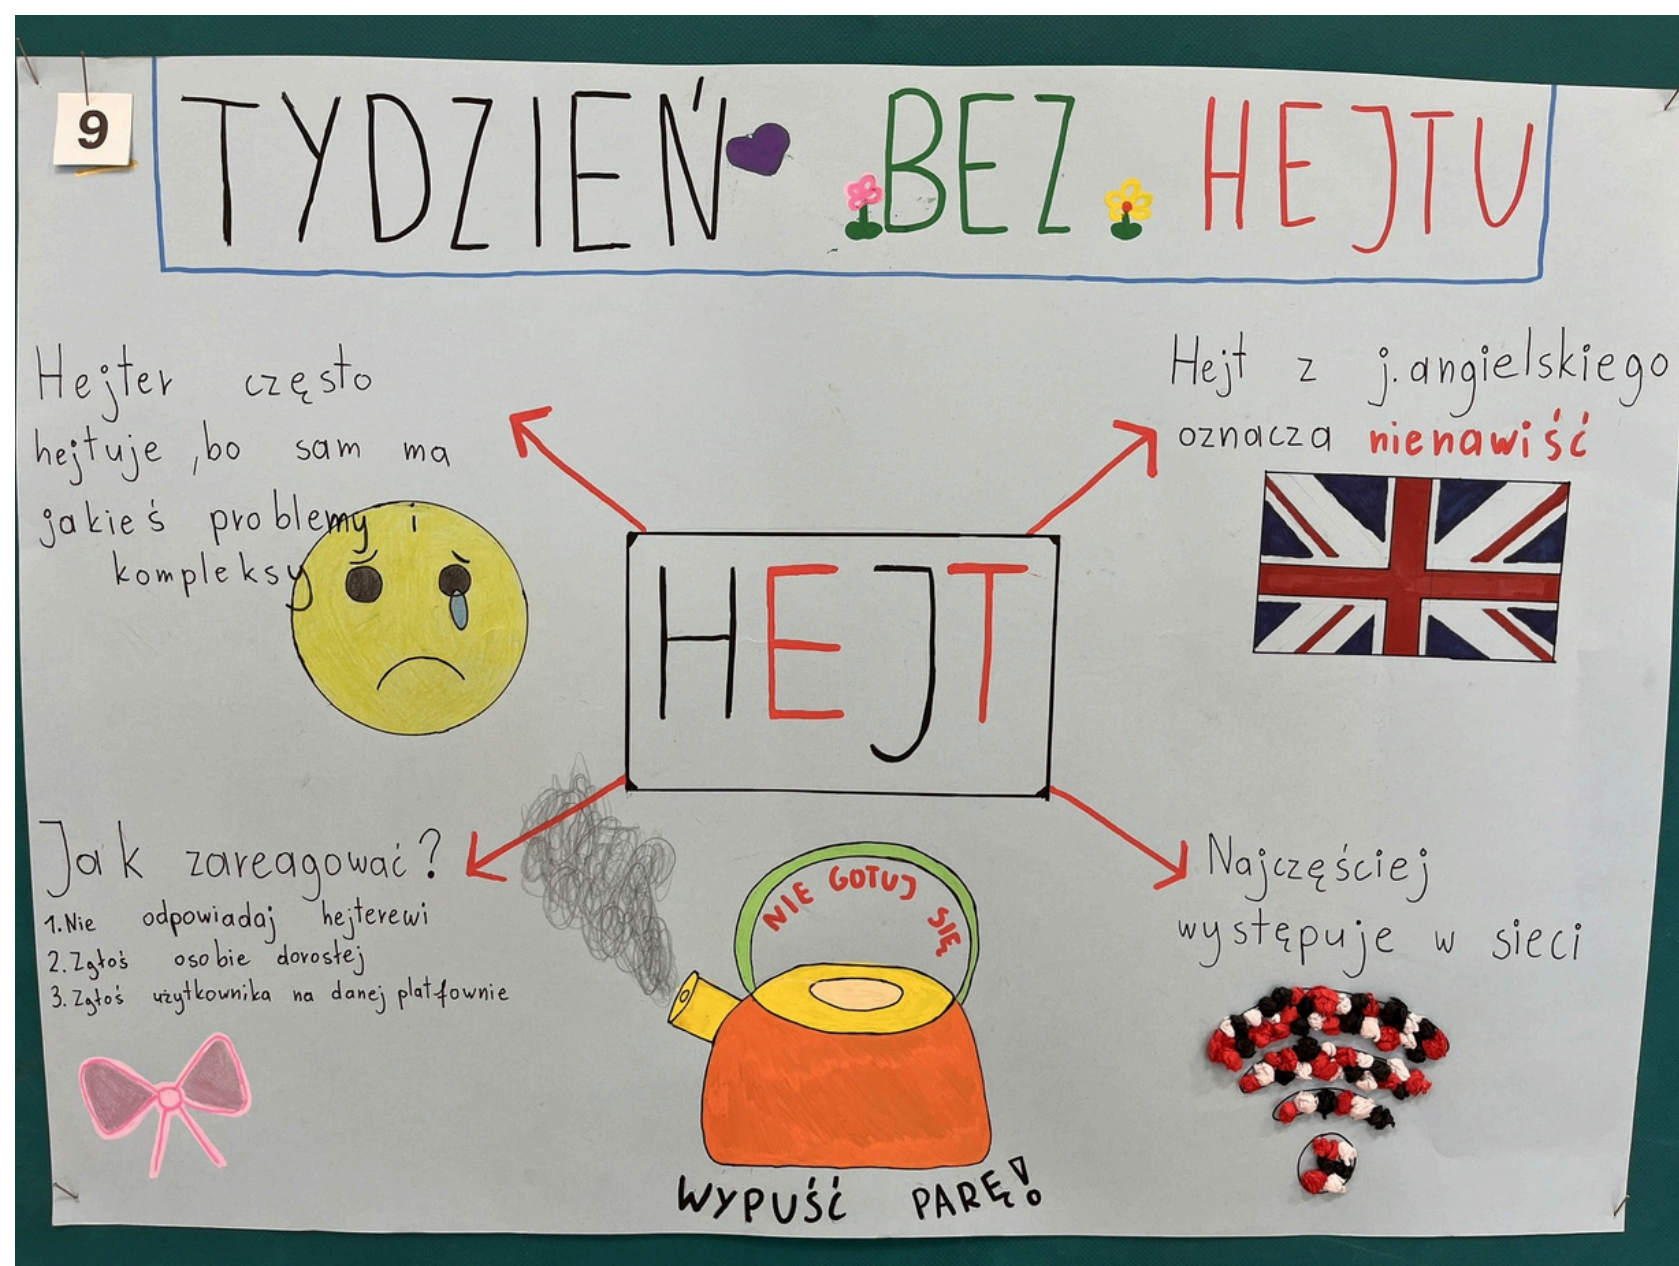 9
TYDZIEŃ BEZ HEJTU
Hejter często
hejtuje ,bo sam ma
jakieś problemy i
kompleksy
Hejt z j.angielskiego
oznacza nienawiść
HEJT
Jak zareagować?
1.Nie odpowiadaj hejterewi
2.Zgłoś osobie dorosłej
3.Zgłoś użytkownika na danej platfownie
NIE GOTUJ SIĘ
WYPUŚĆ PARĘ!
Najczęściej
występuje w sieci